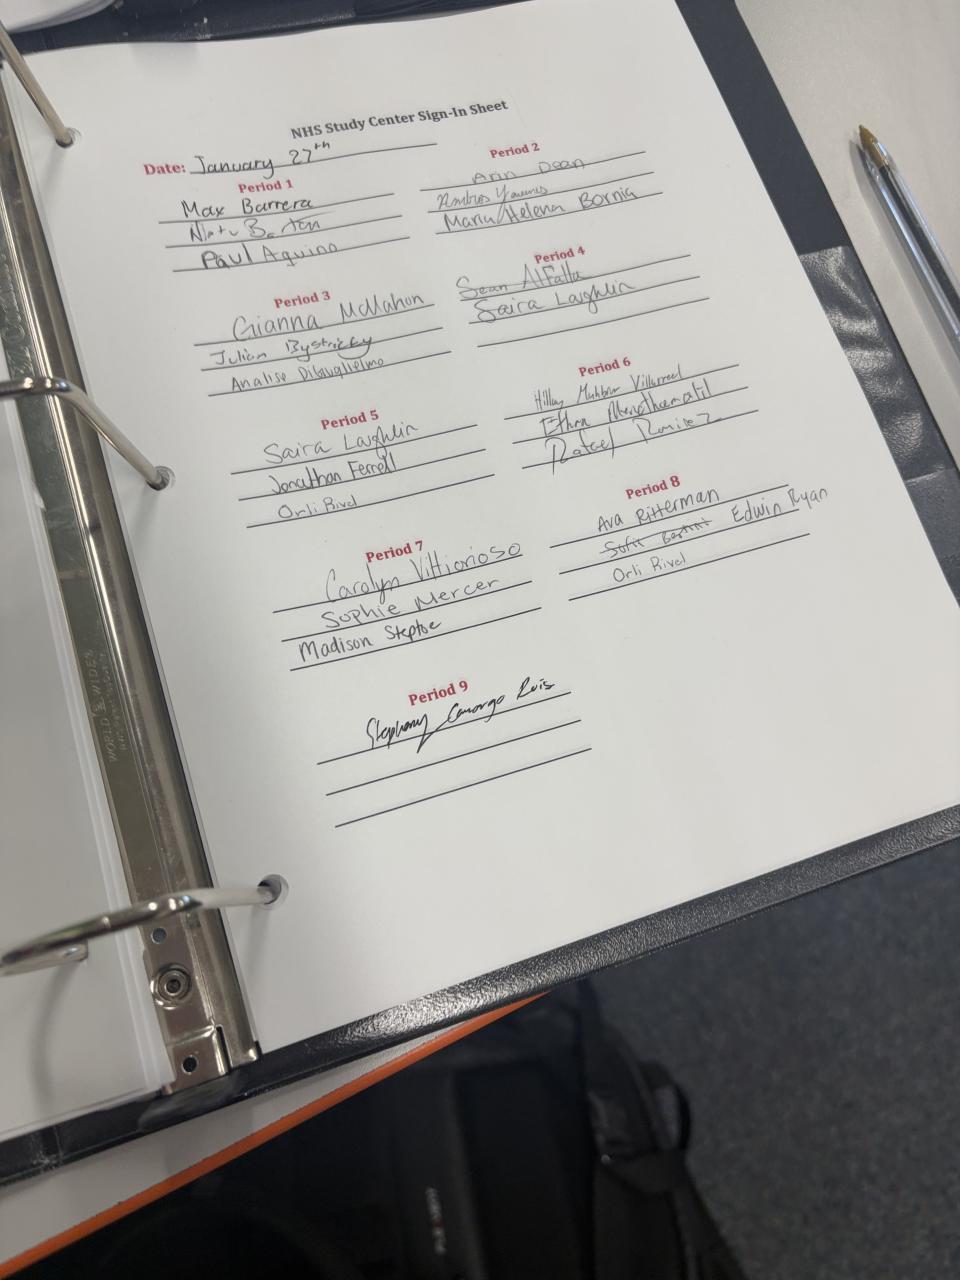 NHS Study Center Sign-In Sheet
Date: January 27th
Period 1
Max Barrera
Paul Aquino
Period 2
Arin Dean
Maria Helena Bornia
Period 3
Gianna McMahon
Julian Bystricky
Analise DiGuglielmo
Period 4
Sean AlFalla
Saira Laughlin
Period 5
Saira Laughlin
Jonathan Ferrell
Orli Rivel
Period 6
Villarreal
Ethan
Rafael Ramirez
Period 7
Carolyn Vittiorioso
Sophie Mercer
Madison Steptoe
Period 8
Ava Ritterman
Edwin Ryan
Orli Rivel
Period 9
Stephany Camargo Ruis
WORLD WIDE